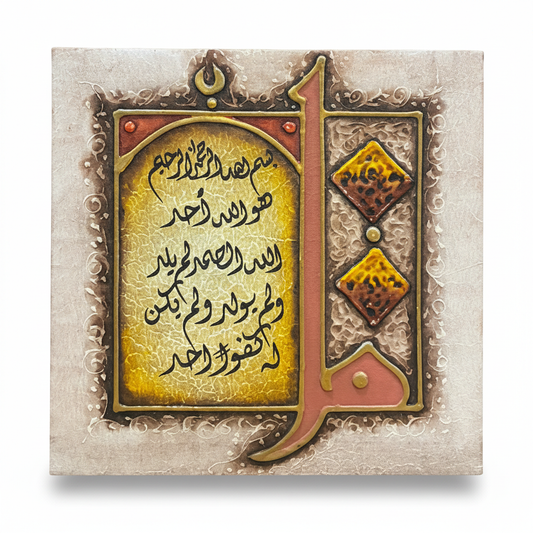 بسم الله الرحمن الرحيم
هو الله أحد
الله الصمد لم يلد
ولم يولد ولم يكن
له كفوا احد